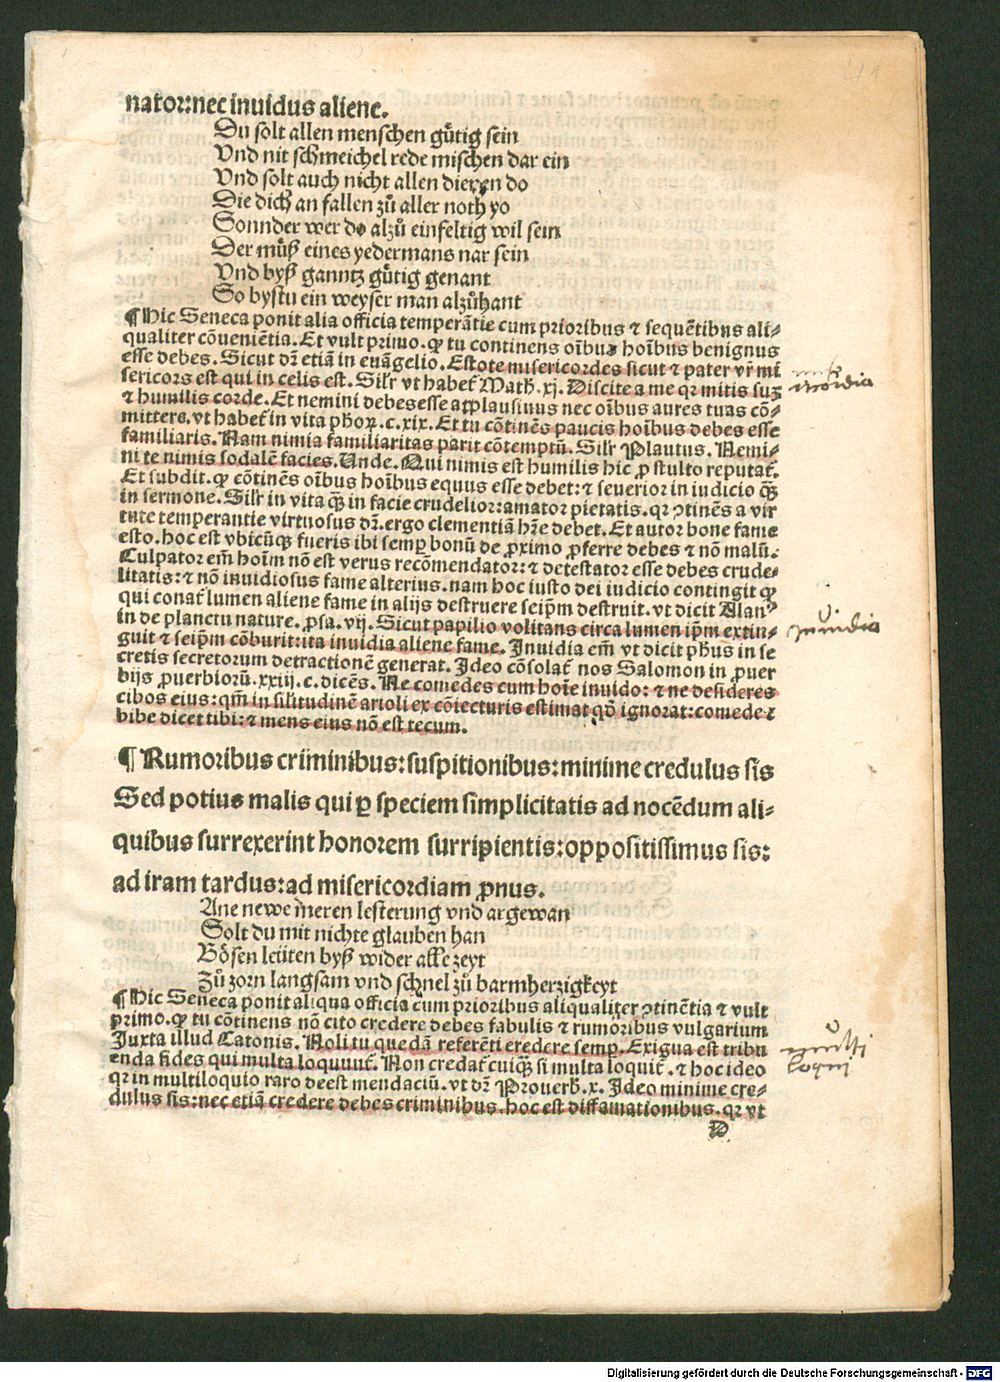 nator:nec inuidus aliene.
Du solt allen menschen gůtig sein
Vnd nit schmeichel rede mischen dar ein
Vnd solt auch nicht allen dieren do
Die dich an fallen zů aller noth yo
Sonnder wer do alzů einfeltig wil sein
Der můß eines yedermans nar sein
Vnd byß ganntz gůtig genant
So bystu ein weyser man alzůhant
¶ Hic Seneca ponit alia officia temperãtie cum prioribus ⁊ sequẽtibus ali-
qualiter cõueniẽtia. Et vult primo. ꝙ tu continens oĩbus hoĩbus benignus
esse debes. Sicut dr̃ etiã in euãgelio. Estote misericordes sicut ⁊ pater vr̃ mi
sericors est qui in celis est. Silr̃ vt habet̃ Math. xj. Discite a me qꝛ mitis suꝫ
⁊ humilis corde. Et nemini debes esse applausiuus nec oĩbus aures tuas cõ-
mittere. vt habet̃ in vita ph̃oꝝ. c. xix. Et tu cõtinẽs paucis hoĩbus debes esse
familiaris. Nam nimia familiaritas parit cõtemptũ. Silr̃ Plautus. Nemi-
ni te nimis sodalẽ facies. Unde. Qui nimis est humilis hic ꝓ stulto reputat̃.
Et subdit. ꝙ cõtinẽs oĩbus hoĩbus equus esse debet: ⁊ seuerior in iudicio ꝙ̃
in sermone. Silr̃ in vita ꝙ̃ in facie crudelior: amator pietatis. qꝛ ꝯtinẽs a vir
tute temperantie virtuosus dr̃. ergo clementiã hr̃e debet. Et autor bone fame
esto. hoc est vbicũꝙ fueris ibi semꝑ bonũ de ꝓximo ꝓferre debes ⁊ nõ malũ.
Culpator em̃ hoĩm nõ est verus recõmendator: ⁊ detestator esse debes crude-
litatis: ⁊ nõ inuidiosus fame alterius. nam hoc iusto dei iudicio contingit ꝙ
qui conat̃ lumen aliene fame in alijs destruere seip̃m destruit. vt dicit Alanꝰ
in de planctu nature. ꝓsa. vij. Sicut papilio volitans circa lumen ip̃m extin-
guit ⁊ seip̃m cõburit: ita inuidia aliene fame. Inuidia em̃ vt dicit ph̃us in se
cretis secretorum detractionẽ generat. Ideo cõsolat̃ nos Salomon in ꝓuer
bijs ꝓuerbiorũ. xxiij. c. dicẽs. Ne comedes cum hoĩe inuido: ⁊ ne desideres
cibos eius: qm̃ in silitudinẽ arioli ex cõiecturis estimat qõ ignorat: comede ⁊
bibe dicet tibi: ⁊ mens eius nõ est tecum.
¶ Rumoribus criminibus: suspitionibus: minime credulus sis
Sed potius malis qui ꝑ speciem simplicitatis ad nocẽdum ali-
quibus surrexerint honorem surripientis: oppositissimus sis:
ad iram tardus: ad misericordiam ꝓnus.
Ane newe meren lesterung vnd argewan
Solt du mit nichte glauben han
Bösen leüten byß wider affe zeyt
Zů zorn langsam vnd schnel zů barmherzigkeyt
¶ Hic Seneca ponit aliqua officia cum prioribus aliqualiter ꝯtinẽtia ⁊ vult
primo. ꝙ tu cõtinens nõ cito credere debes fabulis ⁊ rumoribus vulgarium
Iuxta illud Catonis. Noli tu quedã referẽti credere semꝑ. Exigua est tribu
enda fides qui multa loquunt̃. Non credat̃ cuiꝙ̃ si multa loquit̃. ⁊ hoc ideo
qꝛ in multiloquio raro deest mendaciũ. vt dr̃ Prouerb̃. x. Ideo minime cre-
dulus sis: nec etiã credere debes criminibus. hoc est diffamationibus. qꝛ vt
D
inuidia
multi
loqui
Digitalisierung gefördert durch die Deutsche Forschungsgemeinschaft - DFG